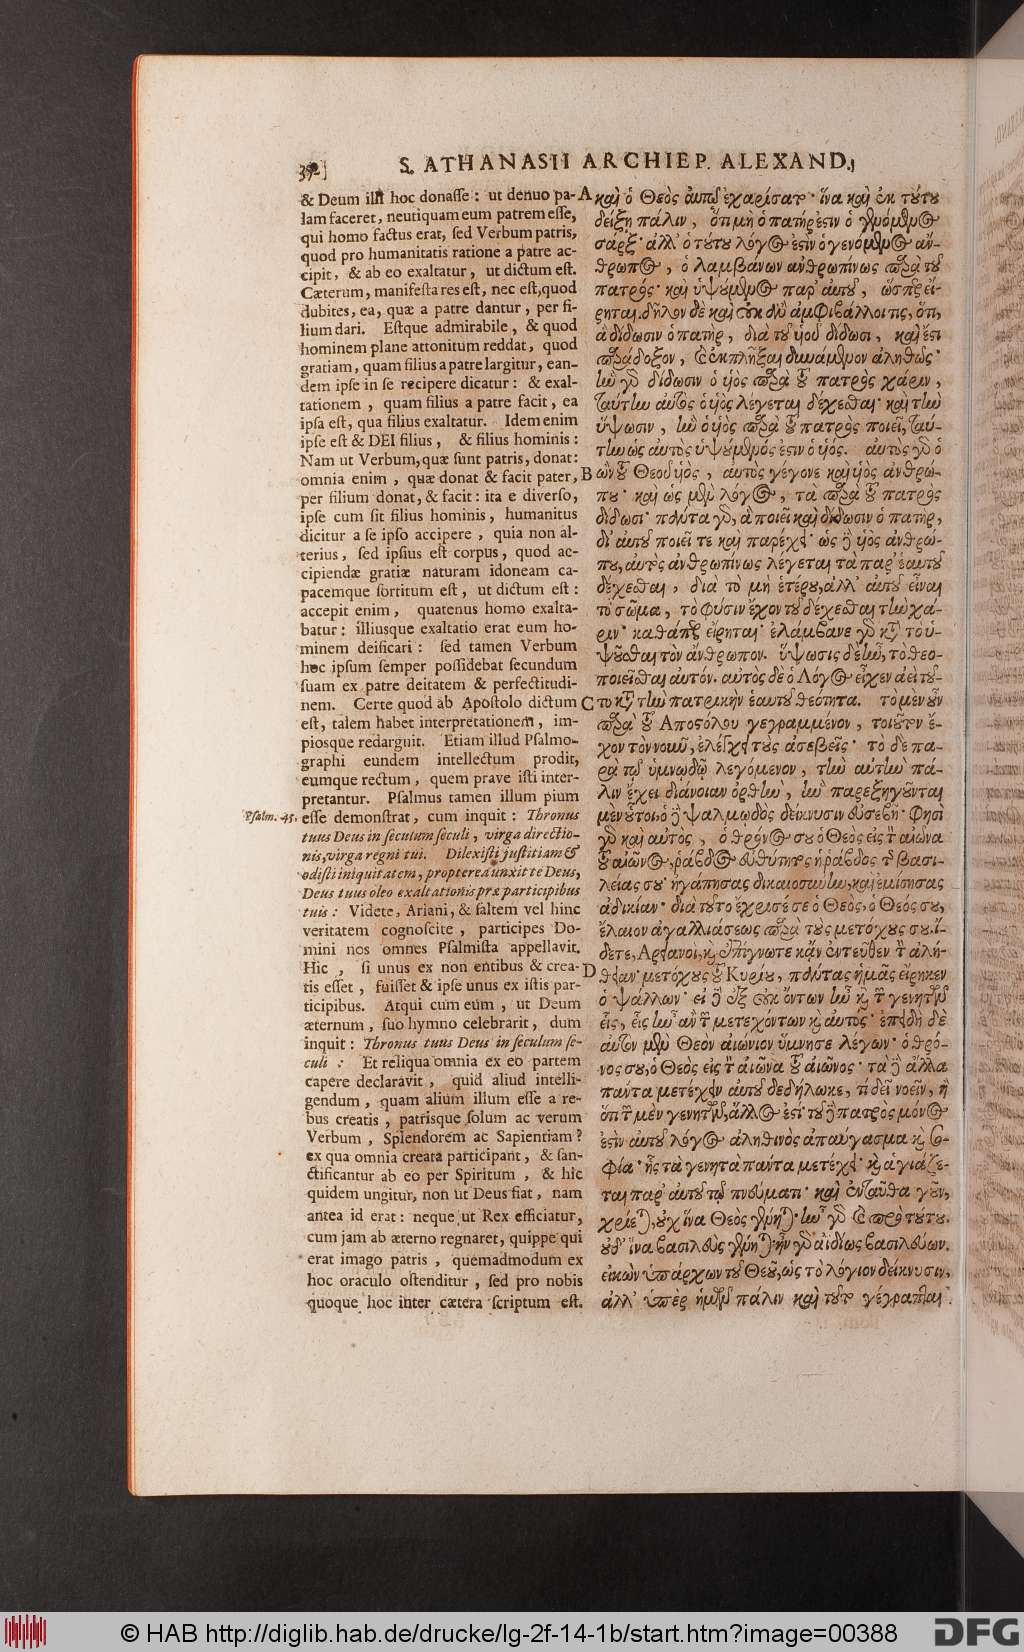 S. ATHANASII ARCHIEP. ALEXAND.
& Deum illi hoc donasse: ut denuo pa-
lam faceret, neutiquam eum patrem esse,
qui homo factus erat, sed Verbum patris,
quod pro humanitatis ratione a patre ac-
cipit, & ab eo exaltatur, ut dictum est.
Cæterum, manifesta res est, nec est, quod
dubites, ea, quæ a patre dantur, per fi-
lium dari. Estque admirabile, & quod
hominem plane attonitum reddat, quod
gratiam, quam filius a patre largitur, ean-
dem ipse in se recipere dicatur: & exal-
tationem, quam filius a patre facit, ea
ipsa est, qua filius exaltatur. Idem enim
ipse est & DEI filius, & filius hominis:
Nam ut Verbum, quæ sunt patris, donat:
omnia enim, quæ donat & facit pater,
per filium donat, & facit: ita e diverso,
ipse cum sit filius hominis, humanitus
dicitur a se ipso accipere, quia non al-
terius, sed ipsius est corpus, quod ac-
cipiendæ gratiæ naturam idoneam ca-
pacemque sortitum est, ut dictum est:
accepit enim, quatenus homo exalta-
batur: illiusque exaltatio erat eum ho-
minem deificari: sed tamen Verbum
hoc ipsum semper possidebat secundum
suam ex patre deitatem & perfectitudi-
nem. Certe quod ab Apostolo dictum
est, talem habet interpretationem, im-
piosque redarguit. Etiam illud Psalmo-
graphi eundem intellectum prodit,
eumque rectum, quem prave isti inter-
pretantur. Psalmus tamen illum pium
Psalm. 45.
esse demonstrat, cum inquit: Thronus
tuus Deus in seculum seculi, virga directio-
nis, virga regni tui. Dilexisti justitiam &
odisti iniquitatem, propterea unxit te Deus,
Deus tuus oleo exaltationis præ participibus
tuis: Videte, Ariani, & saltem vel hinc
veritatem cognoscite, participes Do-
mini nos omnes Psalmista appellavit.
Hic, si unus ex non entibus & crea-
tis esset, fuisset & ipse unus ex istis par-
ticipibus. Atqui cum eum, ut Deum
æternum, suo hymno celebrarit, dum
inquit: Thronus tuus Deus in seculum se-
culi: Et reliqua omnia ex eo partem
capere declaravit, quid aliud intelli-
gendum, quam alium illum esse a re-
bus creatis, patrisque solum ac verum
Verbum, Splendorem ac Sapientiam?
ex qua omnia creata participant, & san-
ctificantur ab eo per Spiritum, & hic
quidem ungitur, non ut Deus fiat, nam
antea id erat: neque ut Rex efficiatur,
cum jam ab æterno regnaret, quippe qui
erat imago patris, quemadmodum ex
hoc oraculo ostenditur, sed pro nobis
quoque hoc inter cætera scriptum est.
A
B
C
D
καὶ ὁ Θεὸς αὐτῷ ἐχαρίσατο· ἵνα καὶ ἐκ τούτου
δείξῃ πάλιν, ὅτι μὴ ὁ πατήρ ἐστιν ὁ γενόμενος
σάρξ· ἀλλ' ὁ τούτου λόγος ἐστὶν ὁ γενόμενος ἄν-
θρωπος, ὁ λαμβάνων ἀνθρωπίνως παρὰ τοῦ
πατρός· καὶ ὑψούμενος παρ' αὐτοῦ, ὥσπερ εἴ-
ρηται. δῆλον δὲ καὶ οὐκ ἂν ἀμφιβάλλοι τις, ὅτι,
ἃ δίδωσιν ὁ πατὴρ, διὰ τοῦ υἱοῦ δίδωσι, καὶ ἔστι
παράδοξον, καὶ ἐκπλῆξαι δυνάμενον ἀληθῶς·
ἣν γὰρ δίδωσιν ὁ υἱὸς παρὰ τοῦ πατρὸς χάριν,
ταύτην αὐτὸς ὁ υἱὸς λέγεται δέχεσθαι· καὶ τὴν
ὕψωσιν, ἣν ὁ υἱὸς παρὰ τοῦ πατρὸς ποιεῖ, ταύ-
την ὡς αὐτὸς ὑψούμενός ἐστιν ὁ υἱός. αὐτὸς γὰρ ὁ
ὢν τοῦ Θεοῦ υἱὸς, αὐτὸς γέγονε καὶ υἱὸς ἀνθρώ-
που· καὶ ὡς μὲν λόγος, τὰ παρὰ τοῦ πατρὸς
δίδωσι· πάντα γὰρ, ἃ ποιεῖ καὶ δίδωσιν ὁ πατὴρ,
δι' αὐτοῦ ποιεῖ τε καὶ παρέχει· ὡς δὲ υἱὸς ἀνθρώ-
που, αὐτὸς ἀνθρωπίνως λέγεται τὰ παρ' ἑαυτοῦ
δέχεσθαι, διὰ τὸ μὴ ἑτέρου, ἀλλ' αὐτοῦ εἶναι
τὸ σῶμα, τὸ φύσιν ἔχον τοῦ δέχεσθαι τὴν χά-
ριν· καθάπερ εἴρηται· ἐλάμβανε γὰρ κατὰ τὸ ὑ-
ψοῦσθαι τὸν ἄνθρωπον. ὕψωσις δὲ ἦν, τὸ θεο-
ποιεῖσθαι αὐτόν. αὐτὸς δὲ ὁ Λόγος εἶχεν ἀεὶ τοῦ-
το κατὰ τὴν πατρικὴν ἑαυτοῦ θεότητα. τὸ μὲν οὖν
παρὰ τοῦ Αποστόλου γεγραμμένον, τοιοῦτον ἔ-
χον τὸν νοῦν, ἐλέγχει τοὺς ἀσεβεῖς· τὸ δὲ πα-
ρὰ τῷ ὑμνῳδῷ λεγόμενον, τὴν αὐτὴν πά-
λιν ἔχει διάνοιαν ὀρθὴν, ἣν παρεξηγοῦνται
μὲν οὗτοι· ὁ δὲ ψαλμῳδὸς δείκνυσιν εὐσεβῆ· Φησὶ
γὰρ καὶ αὐτὸς, ὁ θρόνος σου ὁ Θεὸς εἰς τὸν αἰῶνα
τοῦ αἰῶνος, ῥάβδος εὐθύτητος ἡ ῥάβδος τῆς βασι-
λείας σου· ἠγάπησας δικαιοσύνην, καὶ ἐμίσησας
ἀδικίαν· διὰ τοῦτο ἔχρισέ σε ὁ Θεὸς, ὁ Θεός σου,
ἔλαιον ἀγαλλιάσεως παρὰ τοὺς μετόχους σου. ἴ-
δετε, Αρειανοι, καὶ ἐπίγνωτε κἂν ἐντεῦθεν τὴν ἀλή-
θειαν· μετόχους τοῦ Κυρίου, πάντας ἡμᾶς εἴρηκεν
ὁ ψάλλων· εἰ δὲ ἐξ οὐκ ὄντων ἦν καὶ τῶν γενητῶν
εἷς, εἷς ἦν ἂν τῶν μετεχόντων καὶ αὐτός· ἐπειδὴ δὲ
αὐτὸν μὲν Θεὸν αἰώνιον ὕμνησε λέγων· ὁ θρό-
νος σου, ὁ Θεὸς εἰς τὸν αἰῶνα τοῦ αἰῶνος· τὰ δὲ ἄλλα
πάντα μετέχειν αὐτοῦ δεδήλωκε, τί δεῖ νοεῖν, ἢ
ὅτι τῶν μὲν γενητῶν, ἄλλος ἐστὶ τοῦ δὲ πατρὸς μόνος
ἐστὶν αὐτοῦ λόγος ἀληθινὸς ἀπαύγασμα καὶ σο-
φία· ἧς τὰ γενητὰ πάντα μετέχει· καὶ ἁγιάζε-
ται παρ' αὐτοῦ τῷ πνεύματι· καὶ ἐνταῦθα γοῦν,
χρίεται, οὐχ ἵνα Θεὸς γένηται· ἦν γὰρ καὶ πρὸ τούτου.
οὐδ' ἵνα βασιλεὺς γένηται· ἦν γὰρ ἀϊδίως βασιλεύων.
εἰκὼν ὑπάρχων τοῦ Θεοῦ, ὡς τὸ λόγιον δείκνυσιν,
ἀλλ' ὑπὲρ ἡμῶν πάλιν καὶ τοῦτο γέγραπται
© HAB http://diglib.hab.de/drucke/lg-2f-14-1b/start.htm?image=00388
DFG